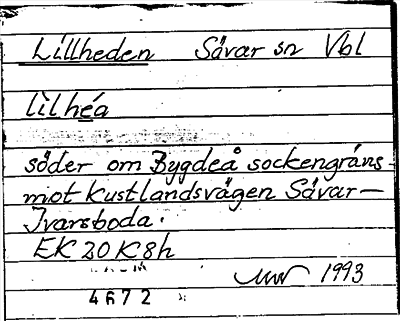 Lillheden Sävar sn Vbl
lìlhéa
söder om Bygdeå sockengräns
mot kustlandsvägen Sävar—
Ivarsboda.
EK 20 K 8h
1993
4672